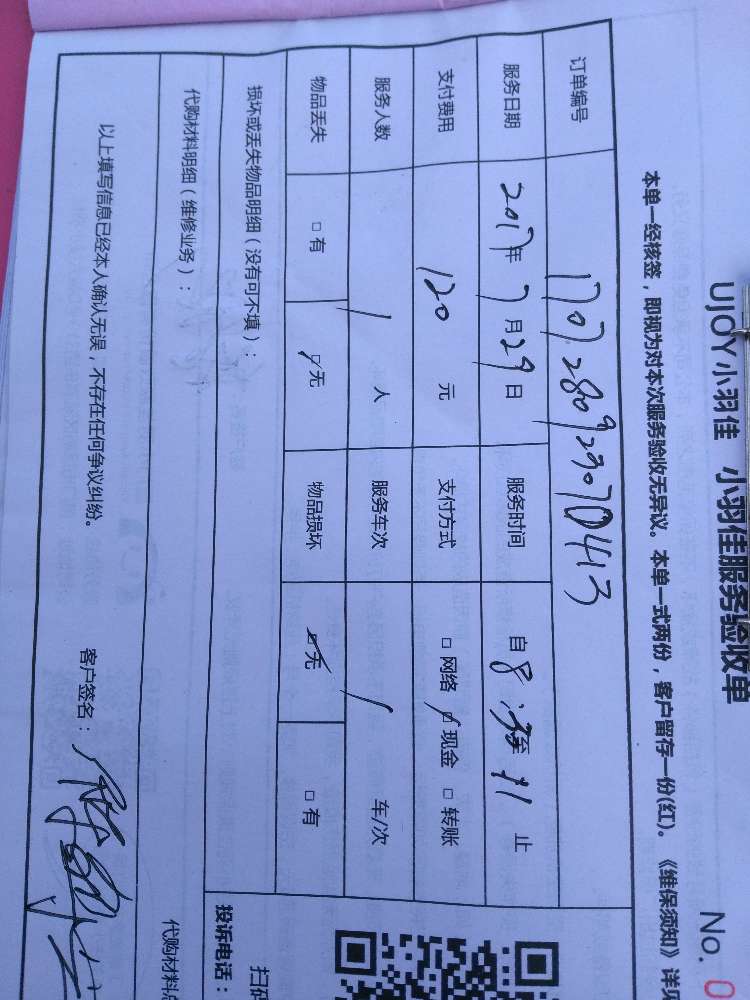 UJOY小羽佳 小羽佳服务验收单
No. 0
本单一经核签，即视为对本次服务验收无异议。本单一式两份，客户留存一份(红)。《维保须知》详
订单编号 1707280929070413
服务日期 2017年7月29日 服务时间 自8至11止
支付费用 120元 支付方式 □网络 ☑现金 □转账
服务人数 1人 服务车次 1车/次
物品丢失 □有 ☑无 物品损坏 ☑无 □有
损坏或丢失物品明细（没有可不填）：
投诉电话：
扫码
代购材料明细（维修业务）：
代购材料
以上填写信息已经本人确认无误，不存在任何争议纠纷。 客户签名：